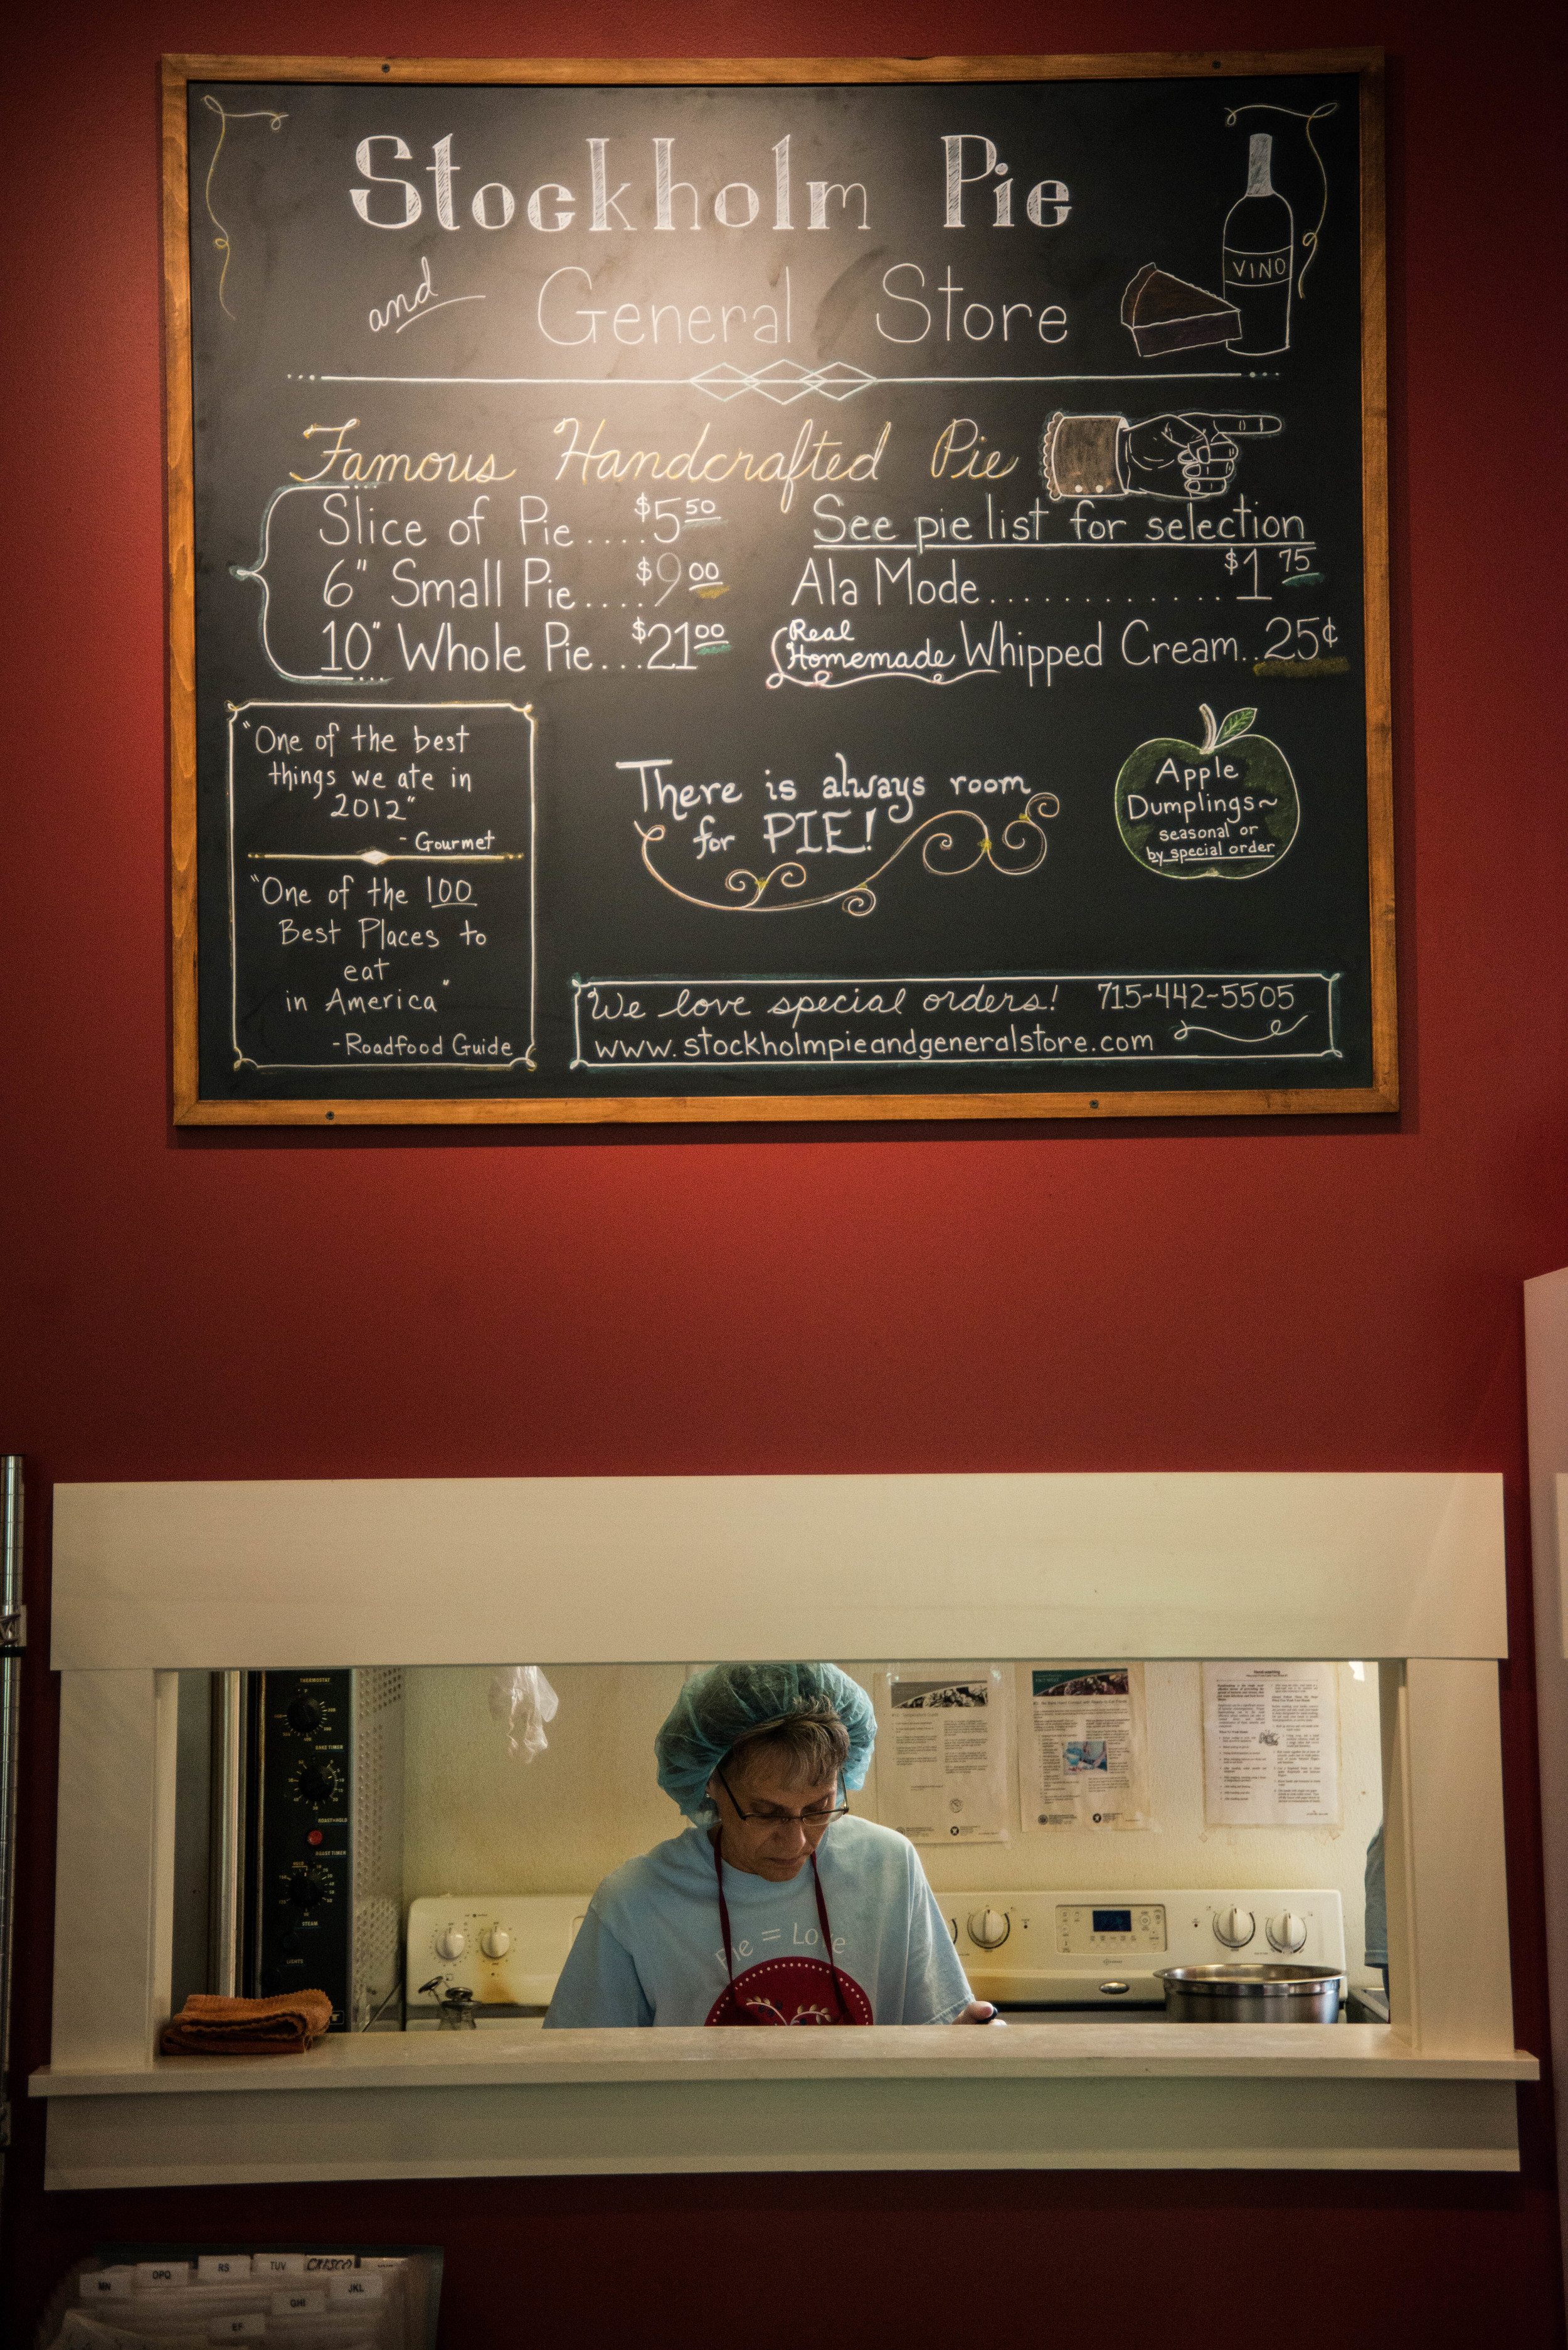 Stockholm Pie
and General Store
VINO
Famous Handcrafted Pie
Slice of Pie....$5.50
6" Small Pie....$9.00
10" Whole Pie...$21.00
See pie list for selection
Ala Mode............$1.75
Real Homemade Whipped Cream..25¢
"One of the best
things we ate in
2012"
- Gourmet
"One of the 100
Best Places to
eat
in America"
- Roadfood Guide
There is always room
for PIE!
Apple
Dumplings~
seasonal or
by special order
We love special orders! 715-442-5505
www.stockholmpieandgeneralstore.com
THERMOSTAT
ROAST TIMER
STEAM
LIGHTS
Pie = Love
MN
OPQ
RS
TUV
CRISCO
JKL
GHI
EF